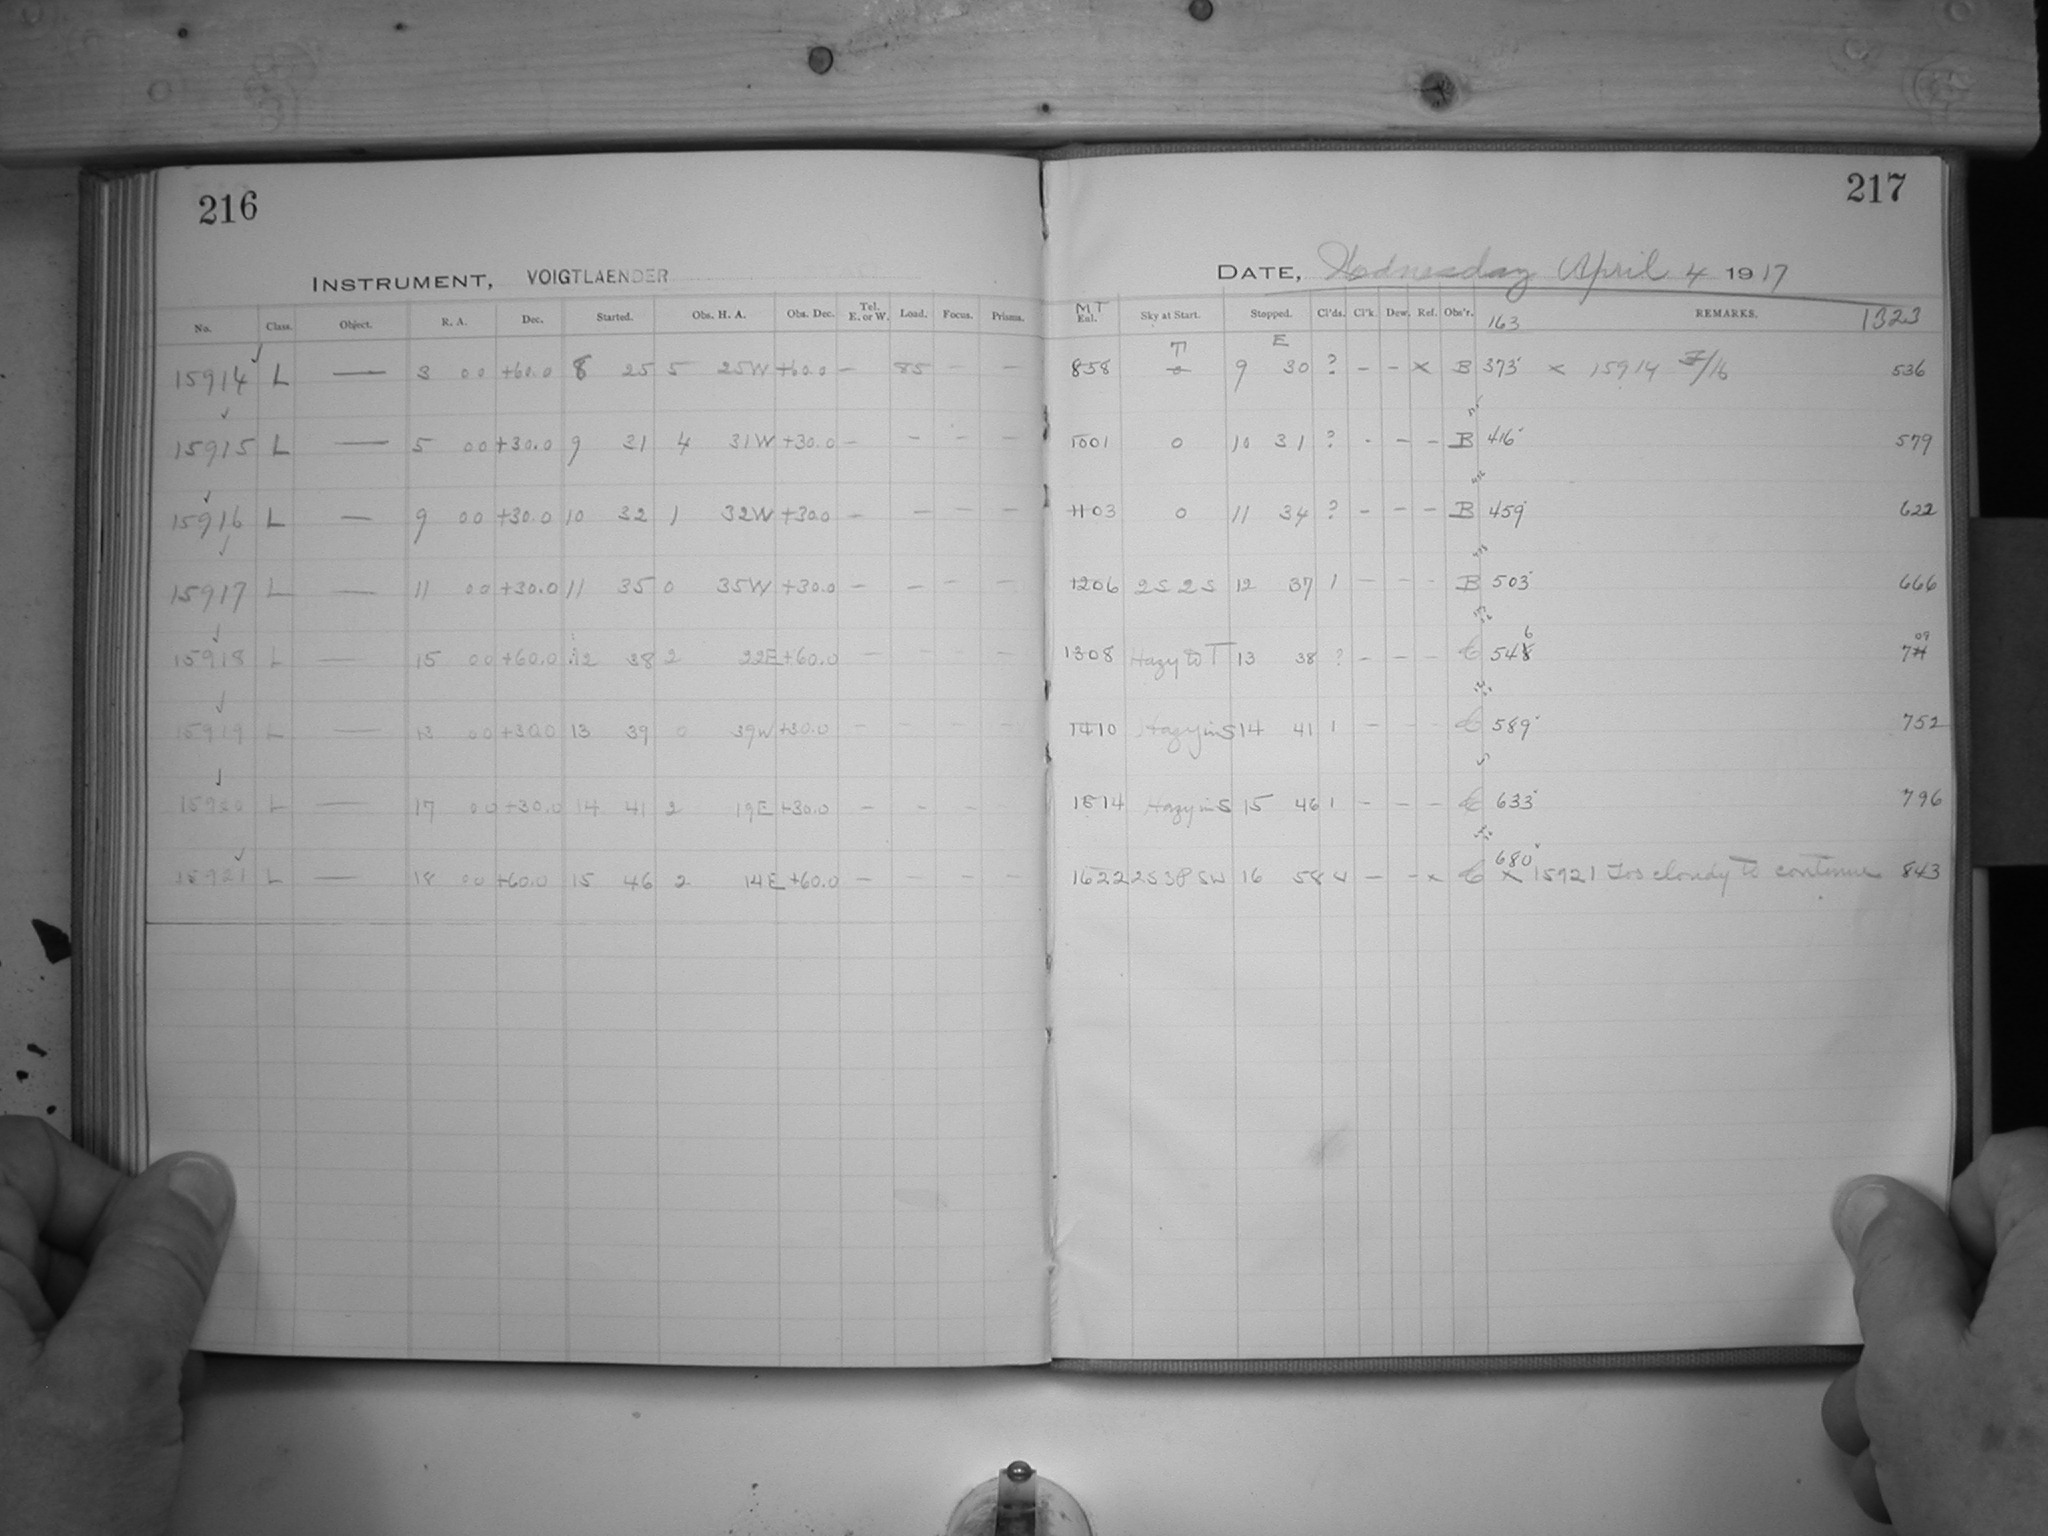 216
INSTRUMENT, VOIGTLAENDER
No. Class. Object. R. A. Dec. Started. Obs. H. A. Obs. Dec. Tel. E. or W. Load. Focus. Prisms.
15914 L — 3 00 +60.0 8 25 5 25W +60.0 — 85 — —
15915 L — 5 00 +30.0 9 31 4 31W +30.0 — — — —
15916 L — 9 00 +30.0 10 32 1 32W +30.0 — — — —
15917 L — 11 00 +30.0 11 35 0 35W +30.0 — — — —
15918 L — 15 00 +60.0 12 38 2 22E +60.0 — — — —
15919 L — 13 00 +30.0 13 39 0 39W +30.0 — — — —
15920 L — 17 00 +30.0 14 41 2 19E +30.0 — — — —
15921 L — 18 00 +60.0 15 46 2 14E +60.0 — — — —
217
DATE, Wednesday April 4 1917
MT
Enl. Sky at Start. Stopped. Cl'ds. Cl'k. Dew. Ref. Obs'r. 163 REMARKS. 1323
T E
858 0 9 30 ? - - x B 373 x 15914 F/16 536
1001 0 10 31 ? - - - B 416 579
1103 0 11 34 ? - - - B 459 622
1206 2S 2S 12 37 1 - - - B 503 666
1308 Hazy to T 13 38 ? - - - 6 548 09 7
1410 Hazy in S 14 41 1 - - - 589 752
1514 Hazy in S 15 46 1 - - - 633 796
1622 2S 3P SW 16 58 4 - - x 680 x 15921 Too cloudy to continue 843